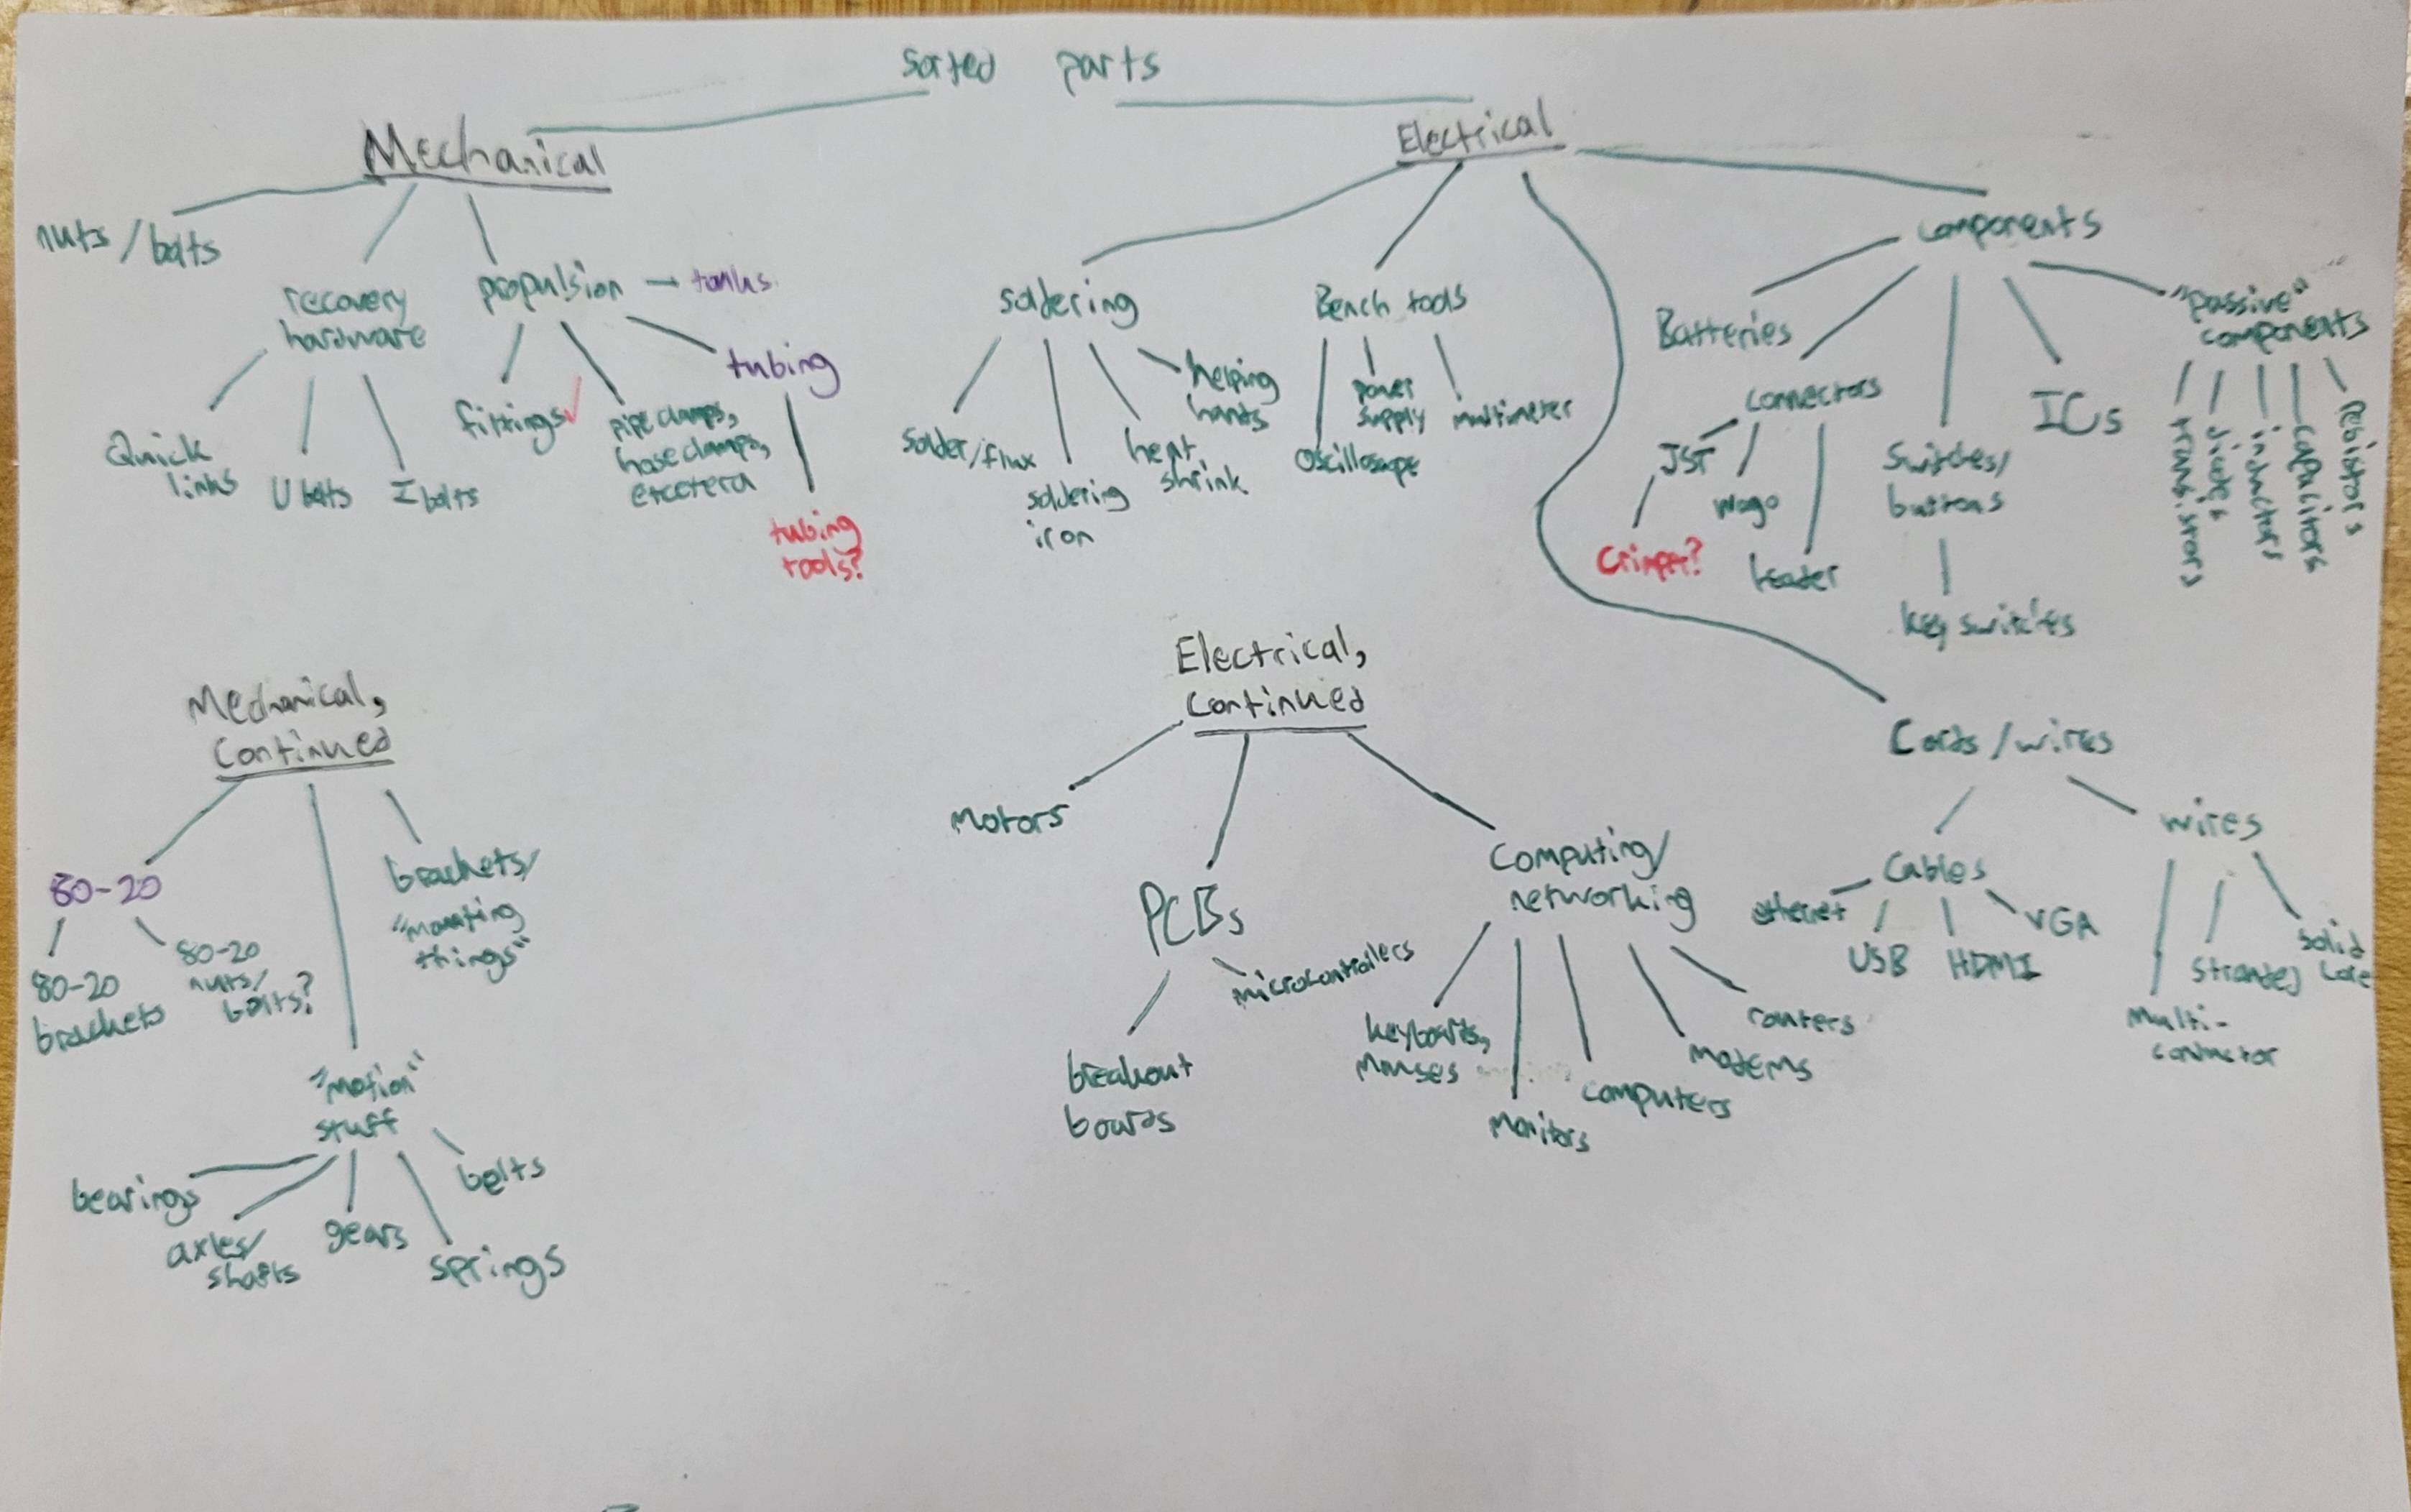 sorted parts
Mechanical
Electrical
nuts/bolts
recovery
hardware
Quick
links
U bolts
I bolts
propulsion
tanks
fittings
pipe clamps,
hose clamps,
etcetera
tubing
tubing
tools?
soldering
solder/flux
soldering
iron
heat
shrink
helping
hands
Bench tools
Oscilloscope
power
supply
multimeter
components
Batteries
connectors
JST
Crimper?
Wago
header
Switches/
buttons
key switches
ICs
"passive"
components
transistors
diodes
inductors
capacitors
resistors
Cords/wires
Cables
ethernet
USB
HDMI
VGA
wires
Multi-
conductor
Stranded
Solid
Core
Mechanical,
Continued
80-20
80-20
brackets
80-20
nuts/
bolts?
"motion"
stuff
bearings
axles/
shafts
gears
springs
belts
brackets/
"mounting
things"
Electrical,
Continued
Motors
PCBs
breakout
boards
microcontrollers
Computing/
networking
keyboards,
mouses
Monitors
computers
modems
routers